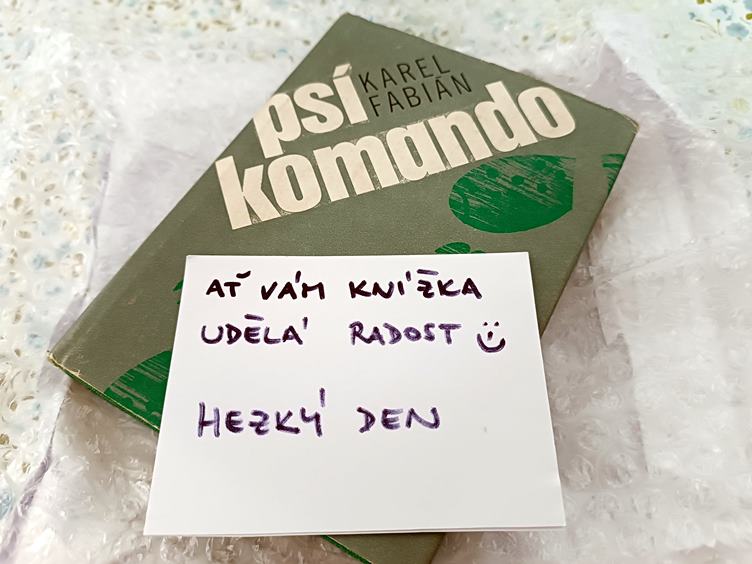 psí
KAREL
FABIÁN
komando
AŤ VÁM KNÍŽKA
UDĚLÁ RADOST
HEZKÝ DEN